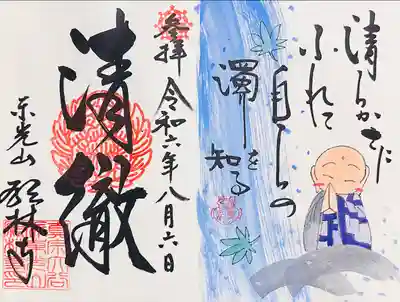 清らかさに
ふれて
自らの
濁りを知る
参拝 令和六年八月六日
清徹
光山 林寺